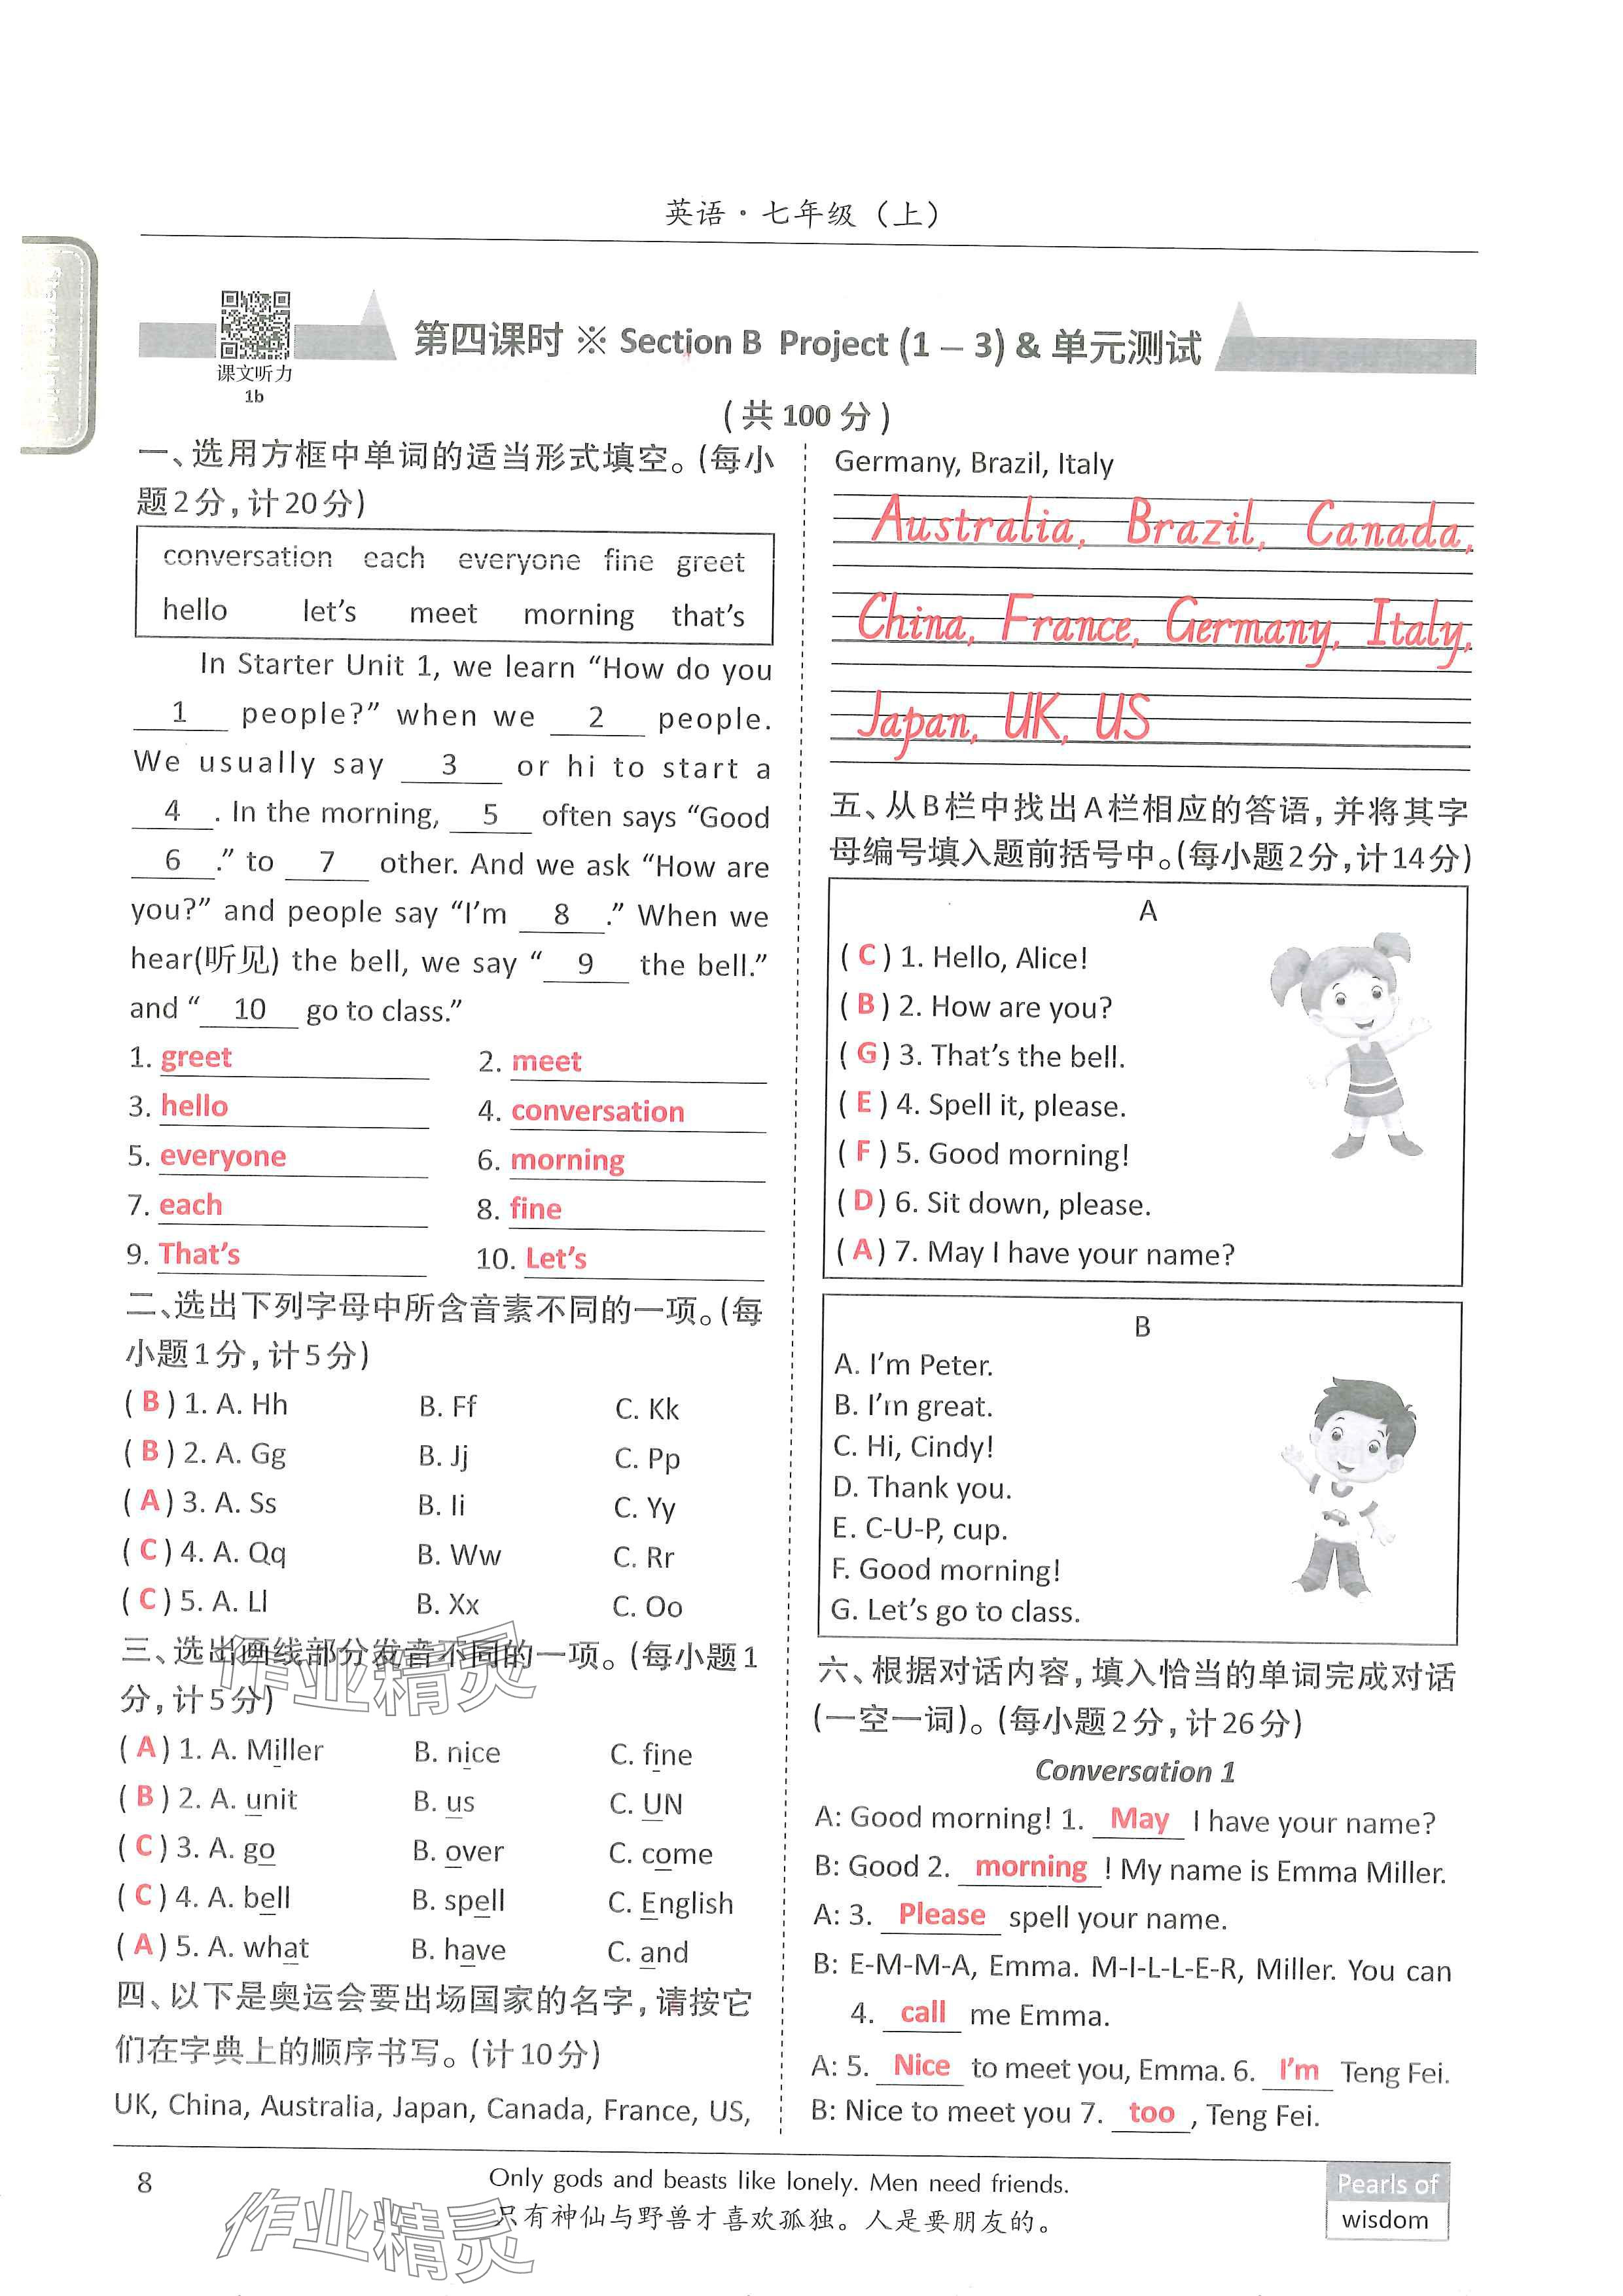 英语·七年级（上）
课文听力
1b
第四课时 ※ Section B Project (1 – 3) & 单元测试
(共 100 分)
一、选用方框中单词的适当形式填空。(每小
题2分,计20分)
conversation each everyone fine greet
hello let's meet morning that's
In Starter Unit 1, we learn “How do you
1 people?” when we 2 people.
We usually say 3 or hi to start a
4 . In the morning, 5 often says “Good
6 .” to 7 other. And we ask “How are
you?” and people say “I'm 8 .” When we
hear(听见) the bell, we say “ 9 the bell.”
and “ 10 go to class.”
1. greet 2. meet
3. hello 4. conversation
5. everyone 6. morning
7. each 8. fine
9. That's 10. Let's
二、选出下列字母中所含音素不同的一项。(每
小题1分,计5分)
( B ) 1. A. Hh B. Ff C. Kk
( B ) 2. A. Gg B. Jj C. Pp
( A ) 3. A. Ss B. Ii C. Yy
( C ) 4. A. Qq B. Ww C. Rr
( C ) 5. A. Ll B. Xx C. Oo
三、选出画线部分发音不同的一项。(每小题1
分,计5分)
( A ) 1. A. Miller B. nice C. fine
( B ) 2. A. unit B. us C. UN
( C ) 3. A. go B. over C. come
( C ) 4. A. bell B. spell C. English
( A ) 5. A. what B. have C. and
四、以下是奥运会要出场国家的名字,请按它
们在字典上的顺序书写。(计10分)
UK, China, Australia, Japan, Canada, France, US,
Germany, Brazil, Italy
Australia, Brazil, Canada,
China, France, Germany, Italy,
Japan, UK, US
五、从B栏中找出A栏相应的答语,并将其字
母编号填入题前括号中。(每小题2分,计14分)
A
( C ) 1. Hello, Alice!
( B ) 2. How are you?
( G ) 3. That's the bell.
( E ) 4. Spell it, please.
( F ) 5. Good morning!
( D ) 6. Sit down, please.
( A ) 7. May I have your name?
B
A. I'm Peter.
B. I'm great.
C. Hi, Cindy!
D. Thank you.
E. C-U-P, cup.
F. Good morning!
G. Let's go to class.
六、根据对话内容,填入恰当的单词完成对话
(一空一词)。(每小题2分,计26分)
Conversation 1
A: Good morning! 1. May I have your name?
B: Good 2. morning ! My name is Emma Miller.
A: 3. Please spell your name.
B: E-M-M-A, Emma. M-I-L-L-E-R, Miller. You can
4. call me Emma.
A: 5. Nice to meet you, Emma. 6. I'm Teng Fei.
B: Nice to meet you 7. too , Teng Fei.
作业精灵
8
Only gods and beasts like lonely. Men need friends.
只有神仙与野兽才喜欢孤独。人是要朋友的。
Pearls of
wisdom
作业精灵